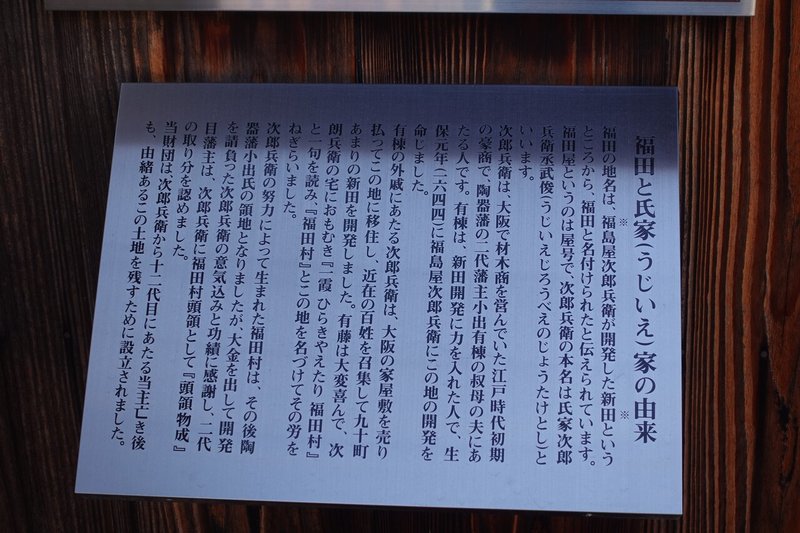 福田と氏家(うじいえ)家の由来
※ ※
福田の地名は、福島屋次郎兵衛が開発した新田という
ところから、福田と名付けられたと伝えられています。
福田屋というのは屋号で、次郎兵衛の本名は氏家次郎
兵衛丞武俊(うじいえじろうべえのじょうたけとし)と
いいます。
次郎兵衛は、大阪で材木商を営んでいた江戸時代初期
の豪商で、陶器藩の二代藩主小出有棟の叔母の夫にあ
たる人です。有棟は、新田開発に力を入れた人で、生
保元年(一六四四)に福島屋次郎兵衛にこの地の開発を
命じました。
有棟の外戚にあたる次郎兵衛は、大阪の家屋敷を売り
払ってこの地に移住し、近在の百姓を召集して九十町
あまりの新田を開発しました。有藤は大変喜んで、次
朗兵衛の宅におもむき『二霞 ひらきやえたり 福田村』
と一句を読み、『福田村』とこの地を名づけてその労を
ねぎらいました。
次郎兵衛の努力によって生まれた福田村は、その後陶
器藩小出氏の領地となりましたが、大金を出して開発
を請負った次郎兵衛の意気込みと功績に感謝し、二代
目藩主は、次郎兵衛に福田村頭領として『頭領物成』
の取り分を認めました。
当財団は、次郎兵衛から十二代目にあたる当主亡き後
も、由緒あるこの土地を残すために設立されました。